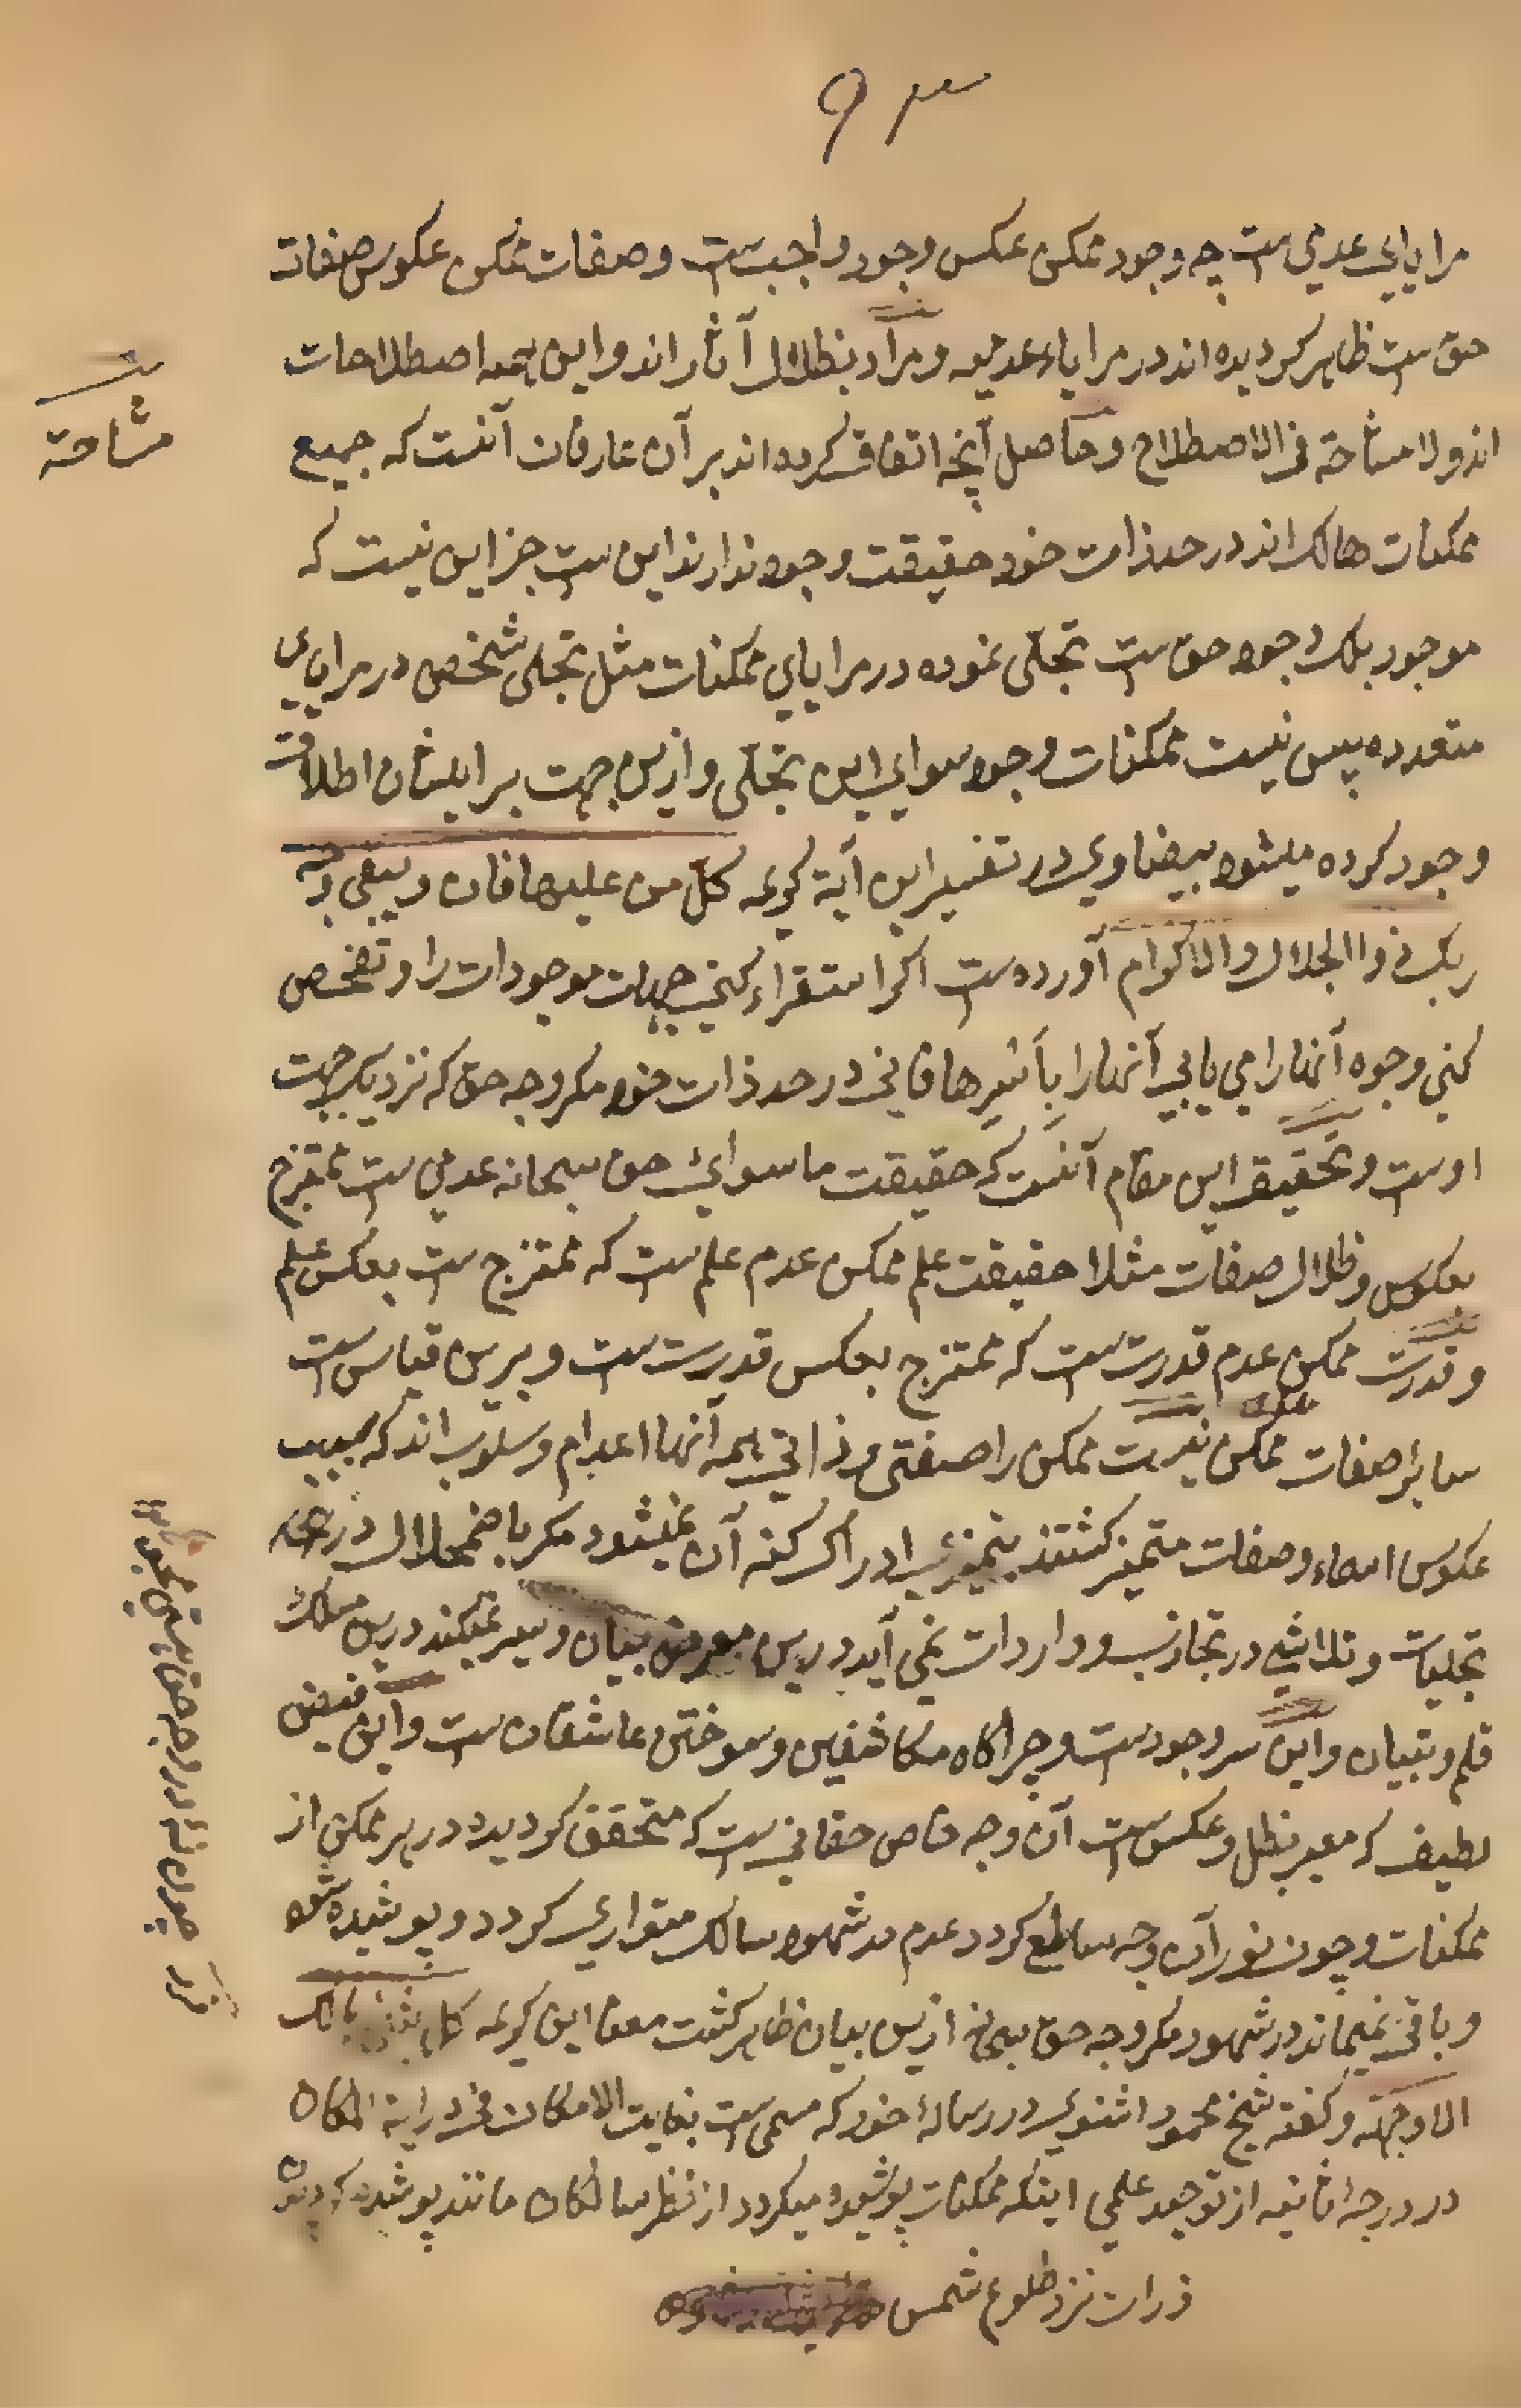 ۹۳
مرایای عدمی ست چه وجود ممکن عکس وجود واجب ست وصفات ممکن عکوس صفات
حق ست ظاهر گردیده اند در مرایاء عدمیه ومراد بظلال آثار اند واین همه اصطلاحات
اند ولا مشاحة فی الاصطلاح وحاصل آنچه اتفاق کرده اند بر آن عارفان آنست که جمیع
مشاحة
ممکنات هالک اند در حد ذات خود حقیقت وجود ندارند این ست جز این نیست که
موجود بلک وجود حق ست تجلّی نموده در مرایای ممکنات مثل تجلی شخص در مرایای
متعدده پس نیست ممکنات وجود سوای این تجلّی وازین جهت بر ایشان اطلاق
وجود کرده میشود بیضاوی در تفسیر این آیة کریمه کلّ من علیها فان ویبقی وجه
ربک ذو الجلال والاکرام آورده ست اگر استقراء کنی جهات موجودات را وتفحص
کنی وجوه آنها را می یابی آنها را بأسرها فانی در حد ذات خود مگر وجه حق که نزدیک جهت
اوست وتحقیق این مقام آنست که حقیقت ماسوای حق سبحانه عدمی ست ممتزج
بعکوس وظلال صفات مثلا حقیقت علم ممکن عدم علم ست که ممتزج ست بعکس علم
وقدرت ممکن عدم قدرت ست که ممتزج بعکس قدرت ست وبرین قیاس ست
سائر صفات ممکن نیست ممکن را صفتی وذاتی همه آنها اعدام وسلوب اند که بسبب
عکوس اسماء وصفات متمیز گشتند بتمیزی ادراک کنه آن نمیشود مگر باضمحلال در
تجلیات وتلاشی در تجاذب وواردات نمی آید درین معرض بیان وسیر نمیکند درین مسلک
قلم وتبیان واین سر وجودست وچراگاه مکاشفین وسوختن عاشقان ست واین فیض
لطیف که معبر بظل وعکس ست آن وجه خاص حقانی ست که متحقق گردیده در هر ممکن از
ممکنات وچون نور آن وجه ساطع گردد عدم در شهود سالک متواری گردد وپوشیده شود
وباقی نمیماند در شهود مگر وجه حق سبحانه ازین بیان ظاهر گشت معنا این کریمه کل شیء هالک
الا وجهه وگفته شیخ محمود اشنوی در رسالهٔ خود که مسمی ست بغایت الامکان فی درایة المکان
در درجهٔ ثانیه از توحید علمی اینکه ممکنات پوشیده میگردد از نظر سالکان مانند پوشیده
ذرات نزد طلوع شمس